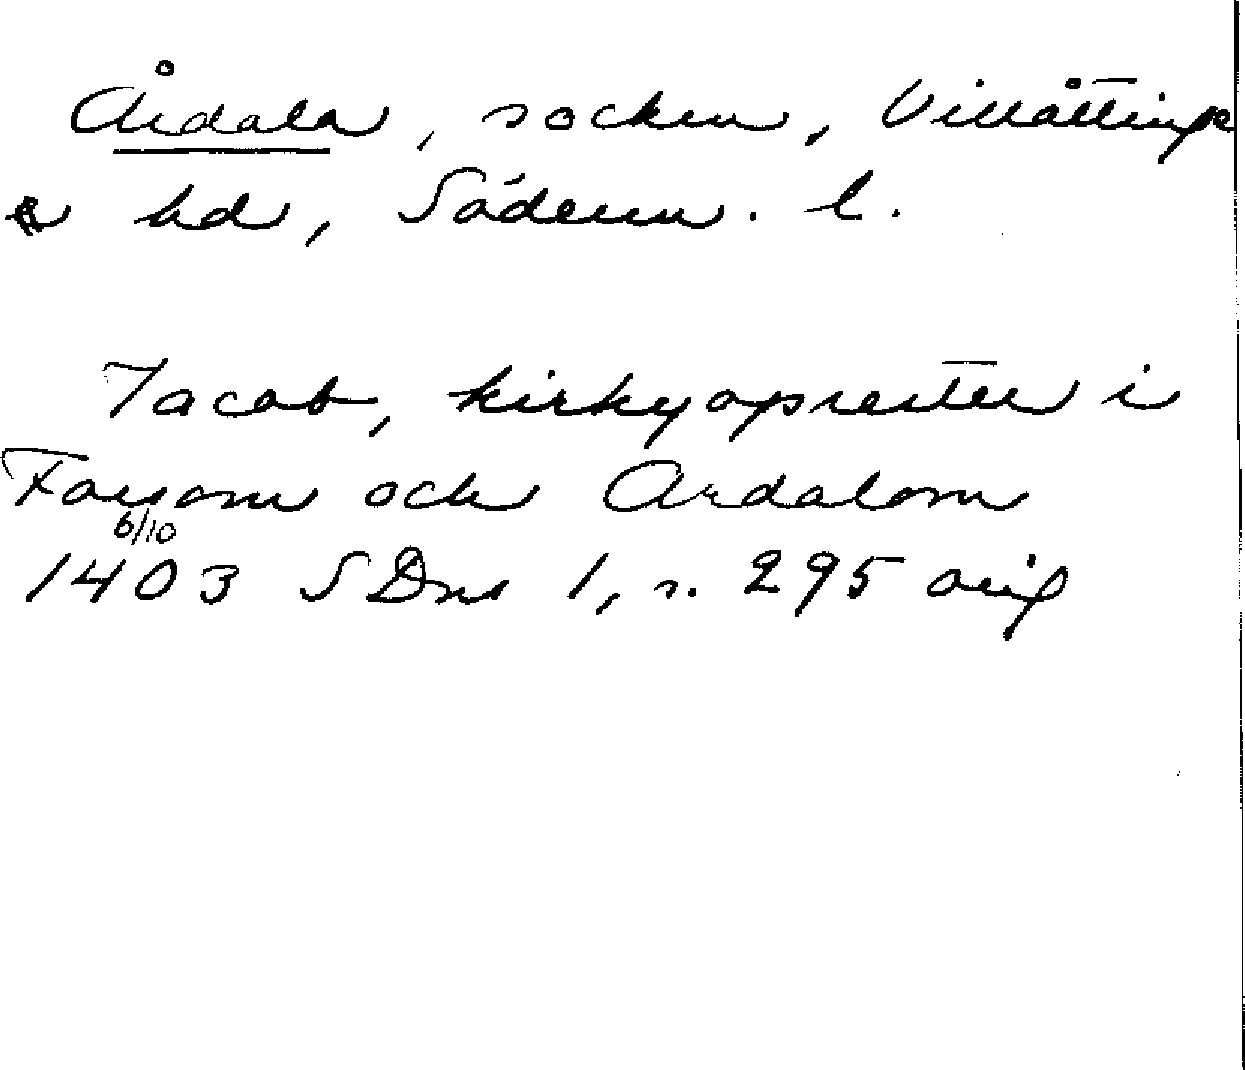 Årdala, socken, Villåttinge
hd, Söderm. l.
Jacob, kirkyoprester i
Forsom och Ardalom
6/10
1403 SDns 1, s. 295 orig